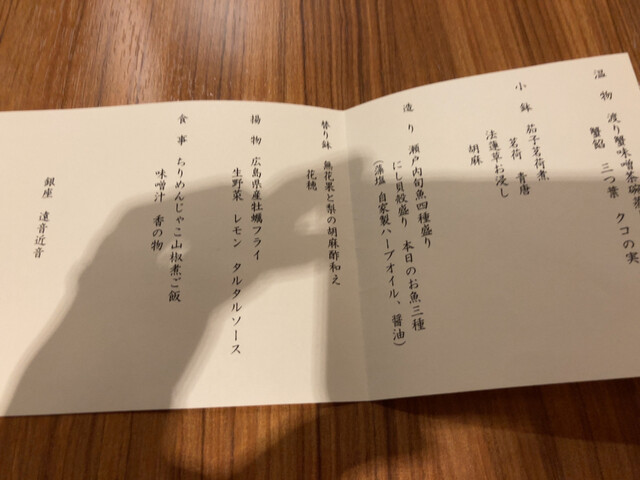 温物 渡り蟹味噌茶碗蒸
蟹餡 三つ葉 クコの実
小鉢 茄子茗荷煮
茗荷 青唐
法蓮草お浸し
胡麻
造り 瀬戸内旬魚四種盛り
にし貝殻盛り 本日のお魚三種
(藻塩 自家製ハーブオイル、醤油)
替り鉢 無花果と梨の胡麻酢和え
花穂
揚物 広島県産牡蠣フライ
生野菜 レモン タルタルソース
食事 ちりめんじゃこ山椒煮ご飯
味噌汁 香の物
銀座 遠音近音